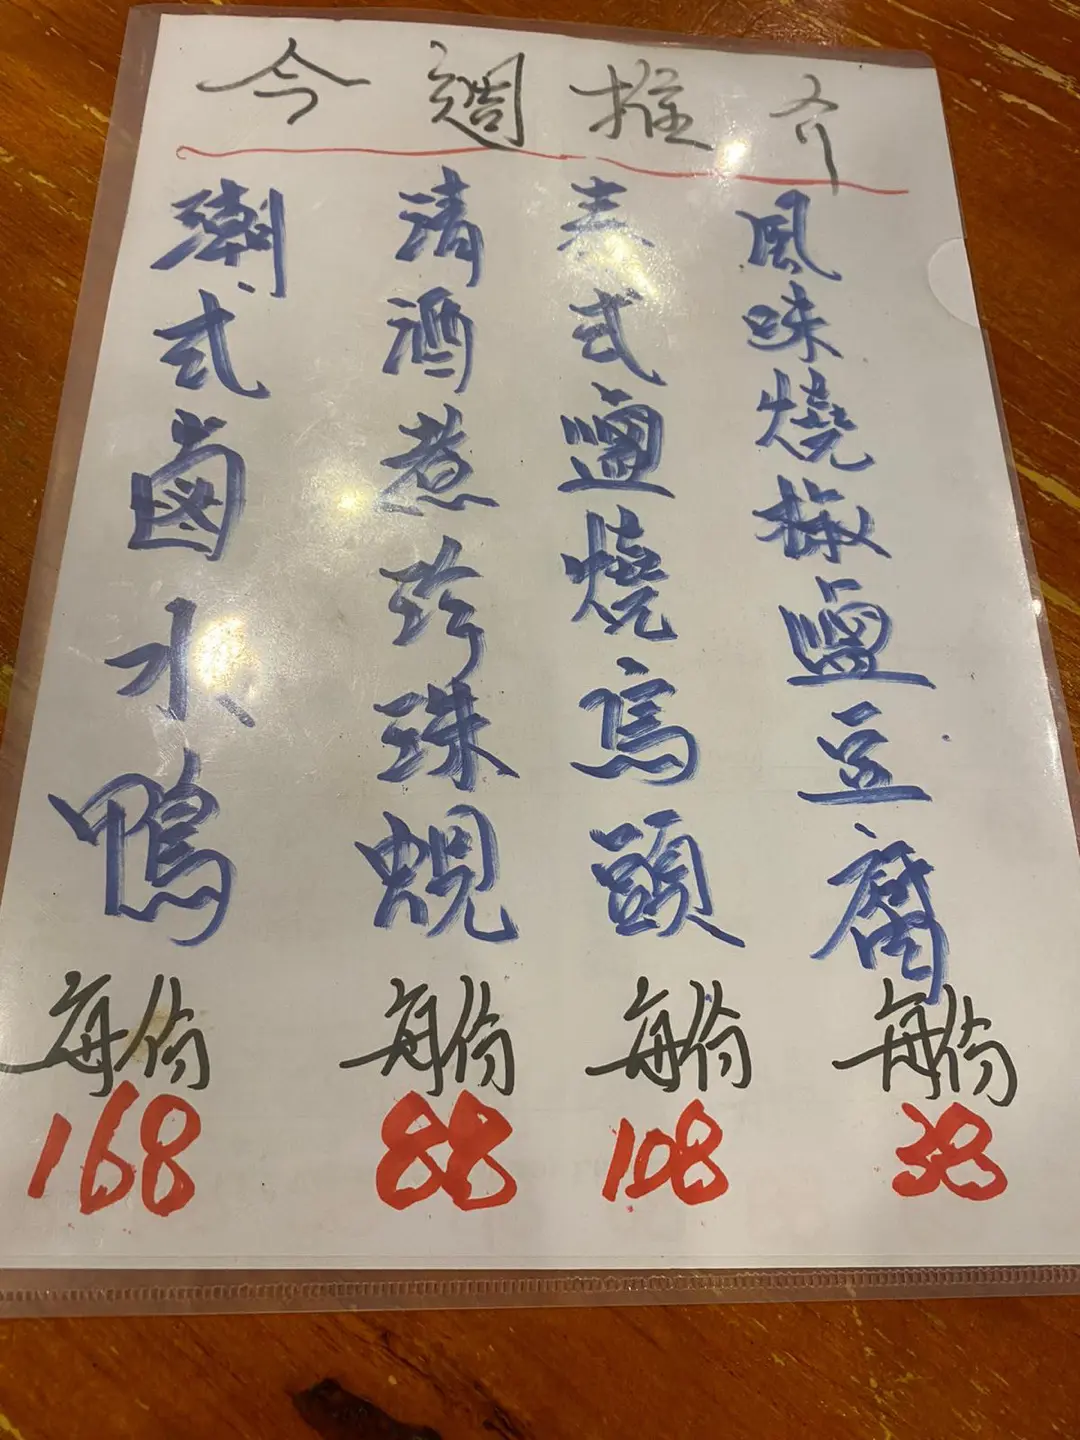 今週推介
潮式鹵水鴨
每份
168
清酒煮珍珠蜆
每份
88
泰式鹽燒烏頭
每份
108
風味燒椒鹽豆腐
每份
38